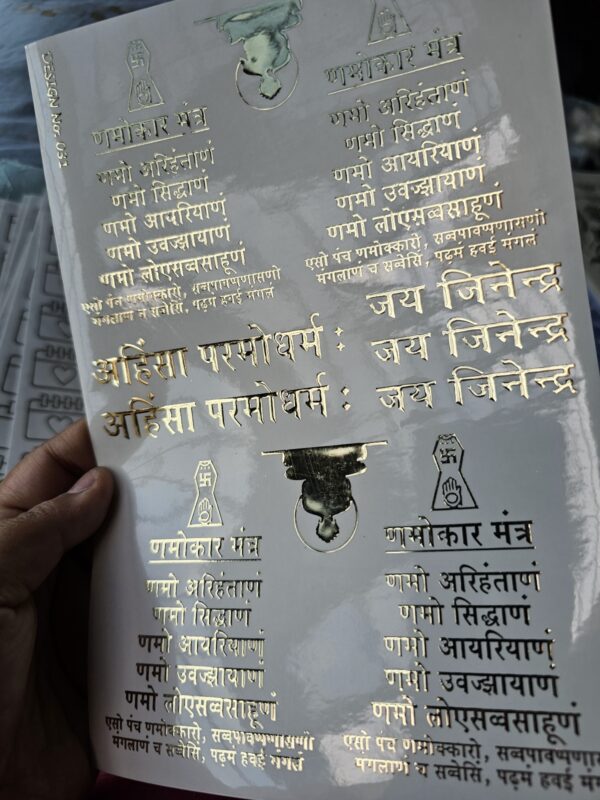 DESIGN No. 031
णमोकार मंत्र
णमो अरिहंताणं
णमो सिद्धाणं
णमो आयरियाणं
णमो उवज्झायाणं
णमो लोएसव्वसाहूणं
एसो पंच णमोक्कारो, सव्वपावप्पणासणो
मंगलाणं च सव्वेसिं, पढ़मं हवई मंगलं
णमोकार मंत्र
णमो अरिहंताणं
णमो सिद्धाणं
णमो आयरियाणं
णमो उवज्झायाणं
णमो लोएसव्वसाहूणं
एसो पंच णमोक्कारो, सव्वपावप्पणासणो
मंगलाणं च सव्वेसिं, पढ़मं हवई मंगलं
जय जिनेन्द्र
अहिंसा परमोधर्म : जय जिनेन्द्र
अहिंसा परमोधर्म : जय जिनेन्द्र
णमोकार मंत्र
णमो अरिहंताणं
णमो सिद्धाणं
णमो आयरियाणं
णमो उवज्झायाणं
णमो लोएसव्वसाहूणं
एसो पंच णमोक्कारो, सव्वपावप्पणासणो
मंगलाणं च सव्वेसिं, पढ़मं हवई मंगलं
णमोकार मंत्र
णमो अरिहंताणं
णमो सिद्धाणं
णमो आयरियाणं
णमो उवज्झायाणं
णमो लोएसव्वसाहूणं
एसो पंच णमोक्कारो, सव्वपावप्पणा
मंगलाणं च सव्वेसिं, पढ़मं हवई मंग